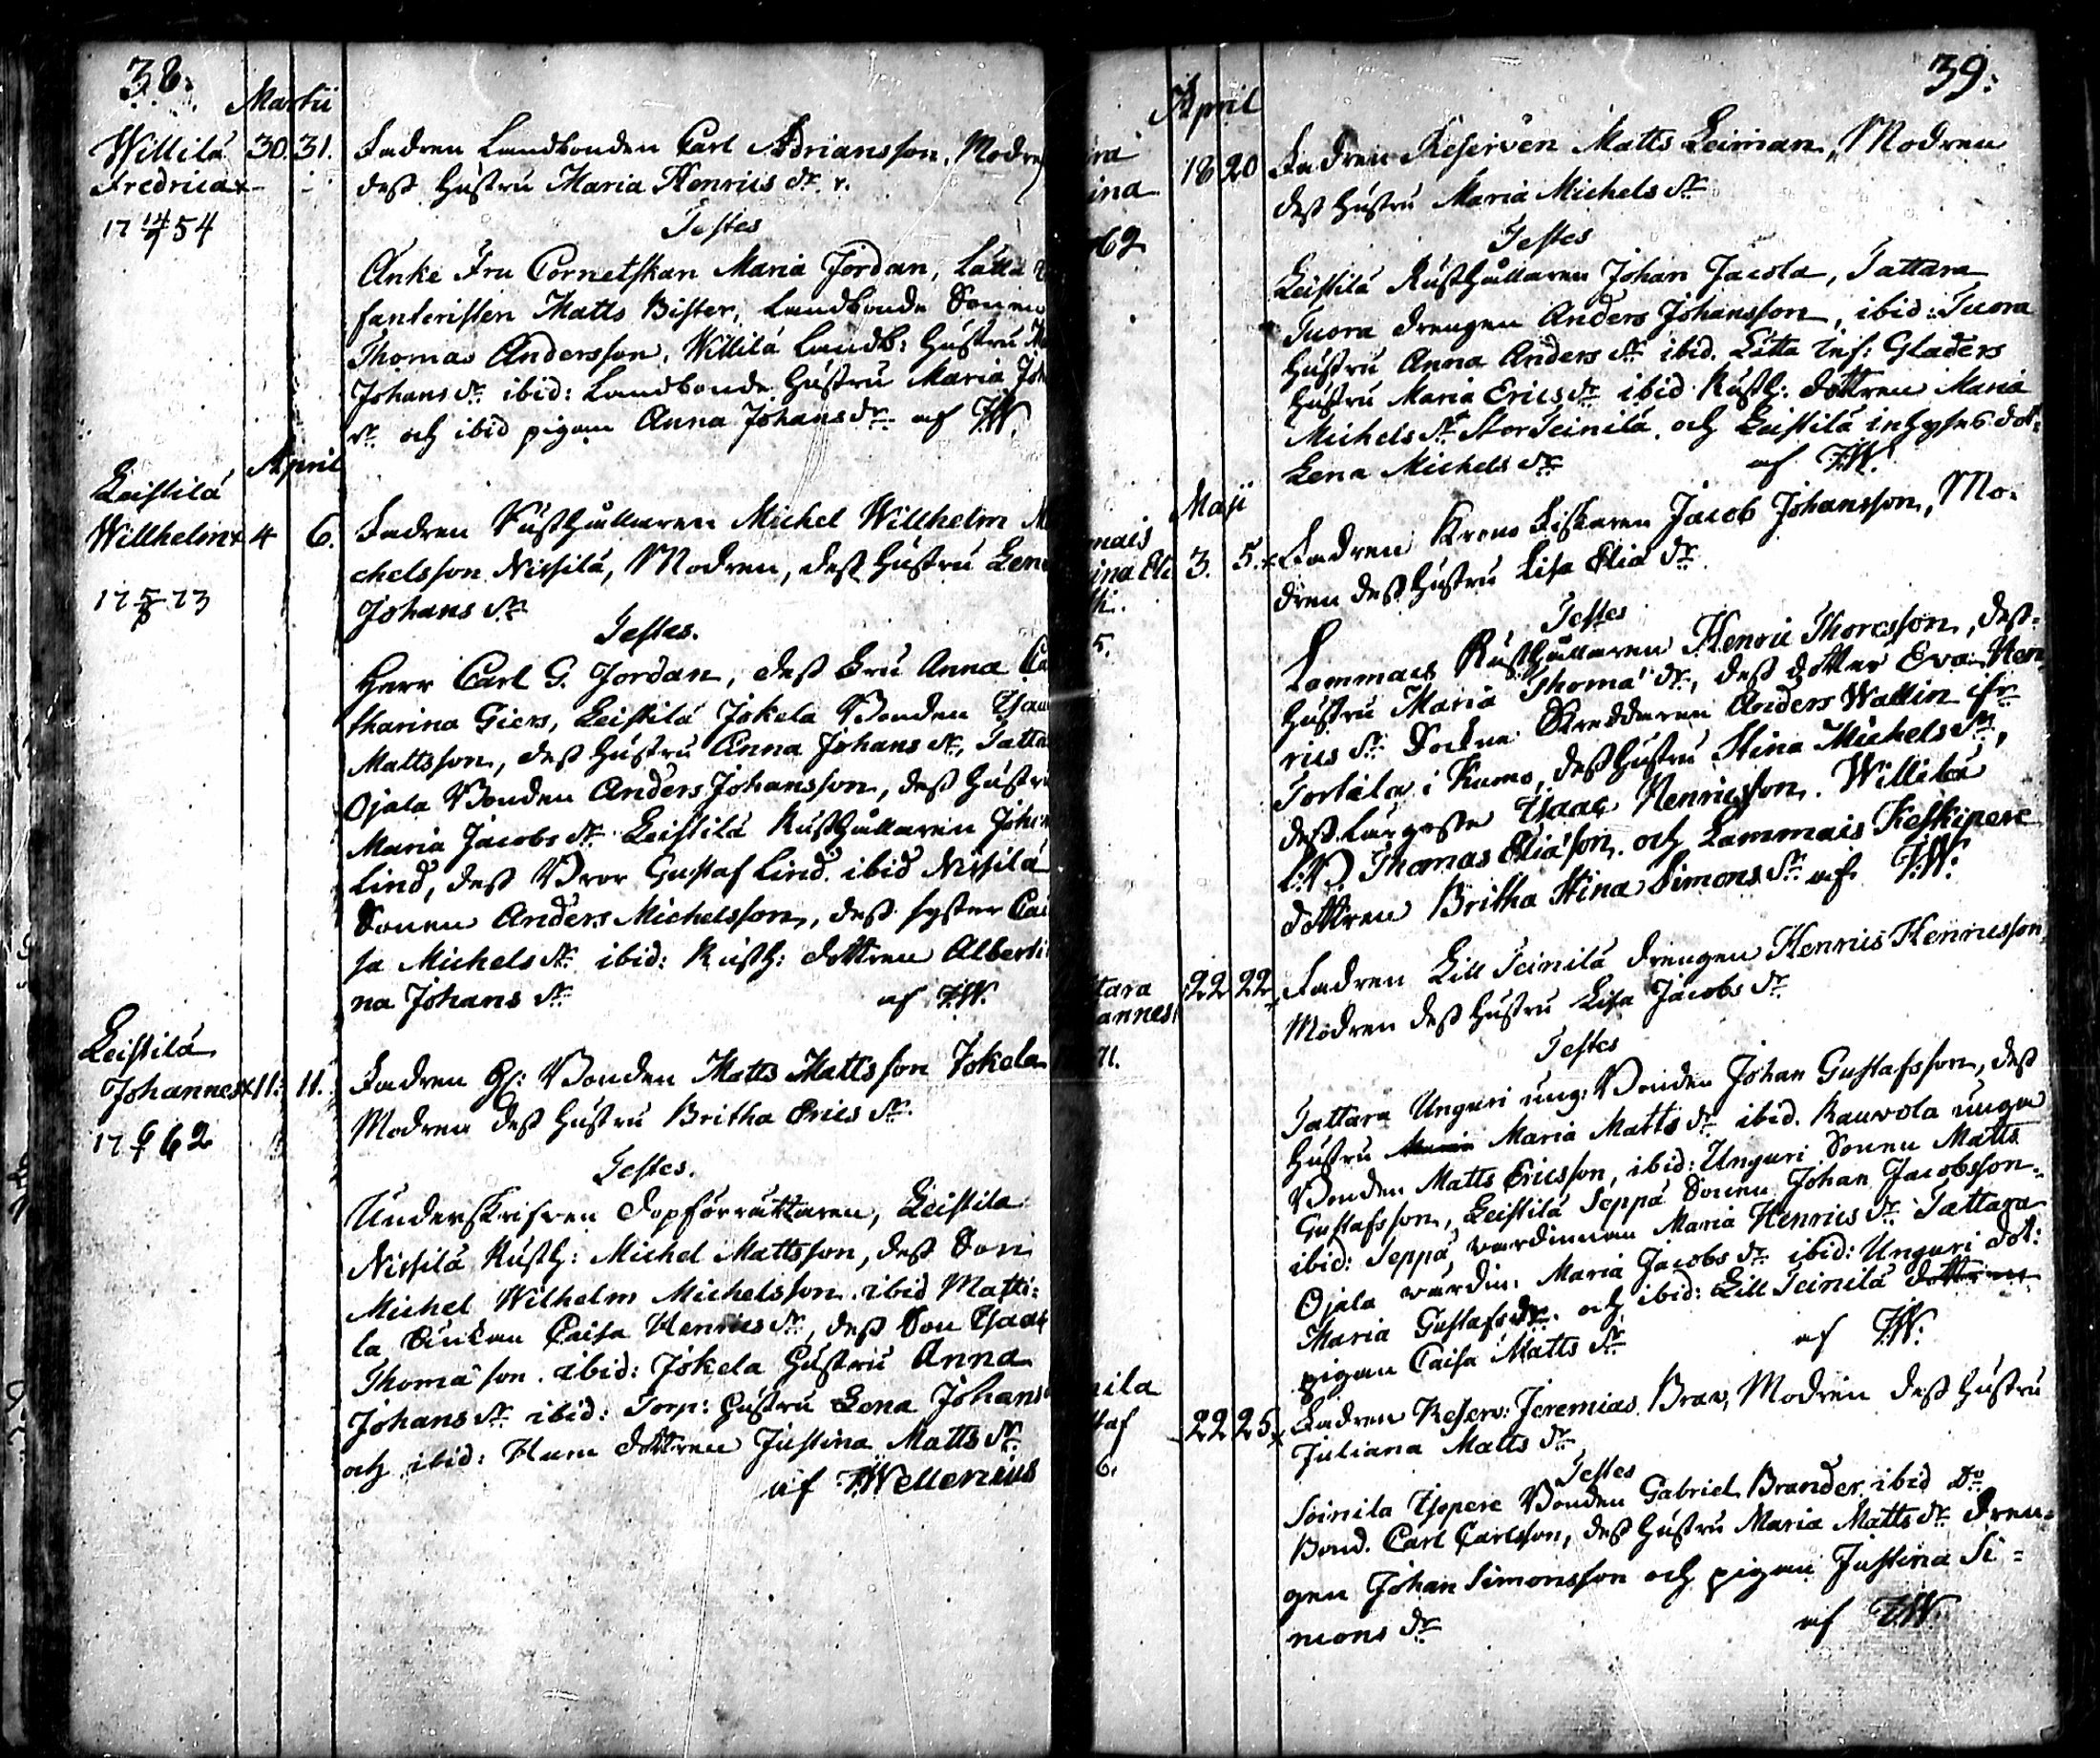 38.
Martii
Willilä 30. 31. Fadren Landbonden Carl Adriansson, Modren
Fredrica dess Hustru Maria Henrics dr.
17 54
Testes
Enke Fru Cornetskan Maria Jordan, Lätta
fanteristen Matts Bister, Landbonde Sonen
Thomas Andersson, Willilä Landb: Hustru
Johans dr ibid: Landbonde Hustru Maria Joh
dr och ibid pigan Anna Johans dr af FW.
April
Leistilä
Willhelm 4 6. Fadren Rusthållaren Michel Willhelm Mi
chelsson Nissilä, Modren, dess Hustru Lena
17 73
Johans dr
Testes.
Herr Carl G. Jordan, dess Fru Anna Ca
tharina Giers, Leistilä Jokela Bonden Isaac
Mattsson, dess Hustru Anna Johans dr, Tatta
Ojala Bonden Anders Johansson, dess Hustru
Maria Jacobs dr Leistilä Rusthållaren Johan
Lind, dess Bror Gustaf Lind. ibid Nissilä
Sonen Anders Michelsson, dess syster Cai
sa Michels dr ibid: Rusth: dottren Alberti
na Johans dr af FW.
Leistilä
Johannes 11. 11. Fadren Bonden Matts Mattsson Jokela
Modren dess Hustru Britha Erics dr.
17 62
Testes.
Underskrifven Dopförrättaren, Leistilä
Nissilä Rusth: Michel Mattsson, dess Son
Michel Wilhelm Michelsson. ibid Matti:
la Enkan Caisa Henrics dr, dess Son Isaac
Thomæ son. ibid: Jokela Hustru Anna
Johans dr ibid: Torp: Hustru Lena Johans
och ibid: dottren Justina Matts dr.
af FWellenius
39.
April
18 20 Fadren Reserven Matts Leiman, Modren
ina dess Hustru Maria Michels dr
62
Testes
Leistilä Rusthållaren Johan Jacola, Tattara
Tuora Drengen Anders Johansson, ibid: Tuora
Hustru Anna Anders dr ibid. Lätta inf: Gladers
Hustru Maria Erics dr ibid Rusth: dottren Maria
Michels dr Stor Seinilä. och Leistilä inhyses dot.
Lena Michels dr af FW.
Maji
mais
3. 5. Fadren Krono Fiskaren Jacob Johansson, Mo.
dren dess Hustru Lisa Eliæ dr.
5.
Testes
Lammais Rusthållaren Henric Thorsson, dess
Hustru Maria Thomæ dr, dess dotter Eva Hen
rics dr Socken Skreddaren Anders Wallin ifr
Torkila i Kumo, dess Hustru Stina Michels dr,
dess Lärgosse Isaac Henricsson. Willilä
L:B. Thomas Eliæ son. och Lammais Keskipere
dottren Britha Stina Simons dr af FW.
tara 22 22 Fadren Lill Seinilä Drengen Henric Henricsson,
annes Modren dess Hustru Lisa Jacobs dr
71.
Testes
Tattara Unguri ung: Bonden Johan Gustafsson, dess
Hustru Maria Matts dr ibid. Rauvola unga
Bonden Matts Ericsson, ibid: Unguri Sonen Matts
Gustafsson, Leistilä Seppä Sonen Johan Jacobsson.
ibid: Seppä vardinnan Maria Henrics dr Tattara
Ojala vardin: Maria Jacobs dr ibid: Unguri dot:
Maria Gustafs dr. och ibid: Lill Seinilä dottren
pigan Caisa Matts dr af FW.
nila
taf 22 25 Fadren Reserv: Jeremias Brav, Modren dess Hustru
Juliana Matts dr.
6.
Testes
Soinila Isopere Bonden Gabriel Brander ibid Do
Bond. Carl Carlsson, dess Hustru Maria Matts dr Dren:
gen Johan Simonsson och pigan Justina Si=
mons dr af FW.